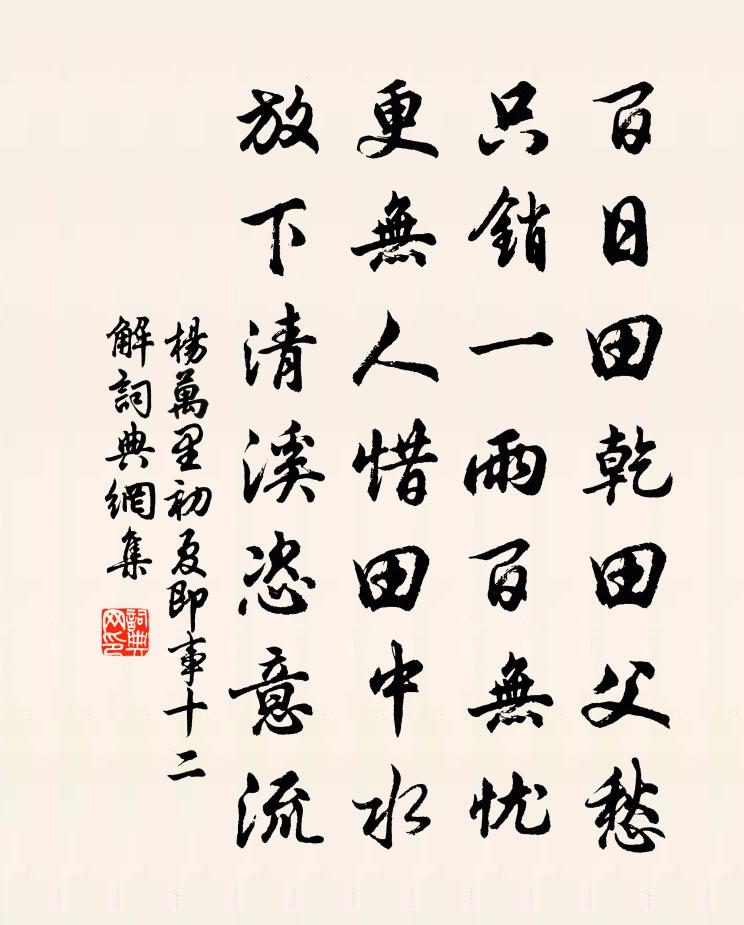 百日田乾田父愁
只銷一雨百無忧
更無人惜田中水
放下清溪恣意流
楊萬里初夏即事十二
解詞典網集
詞典网印